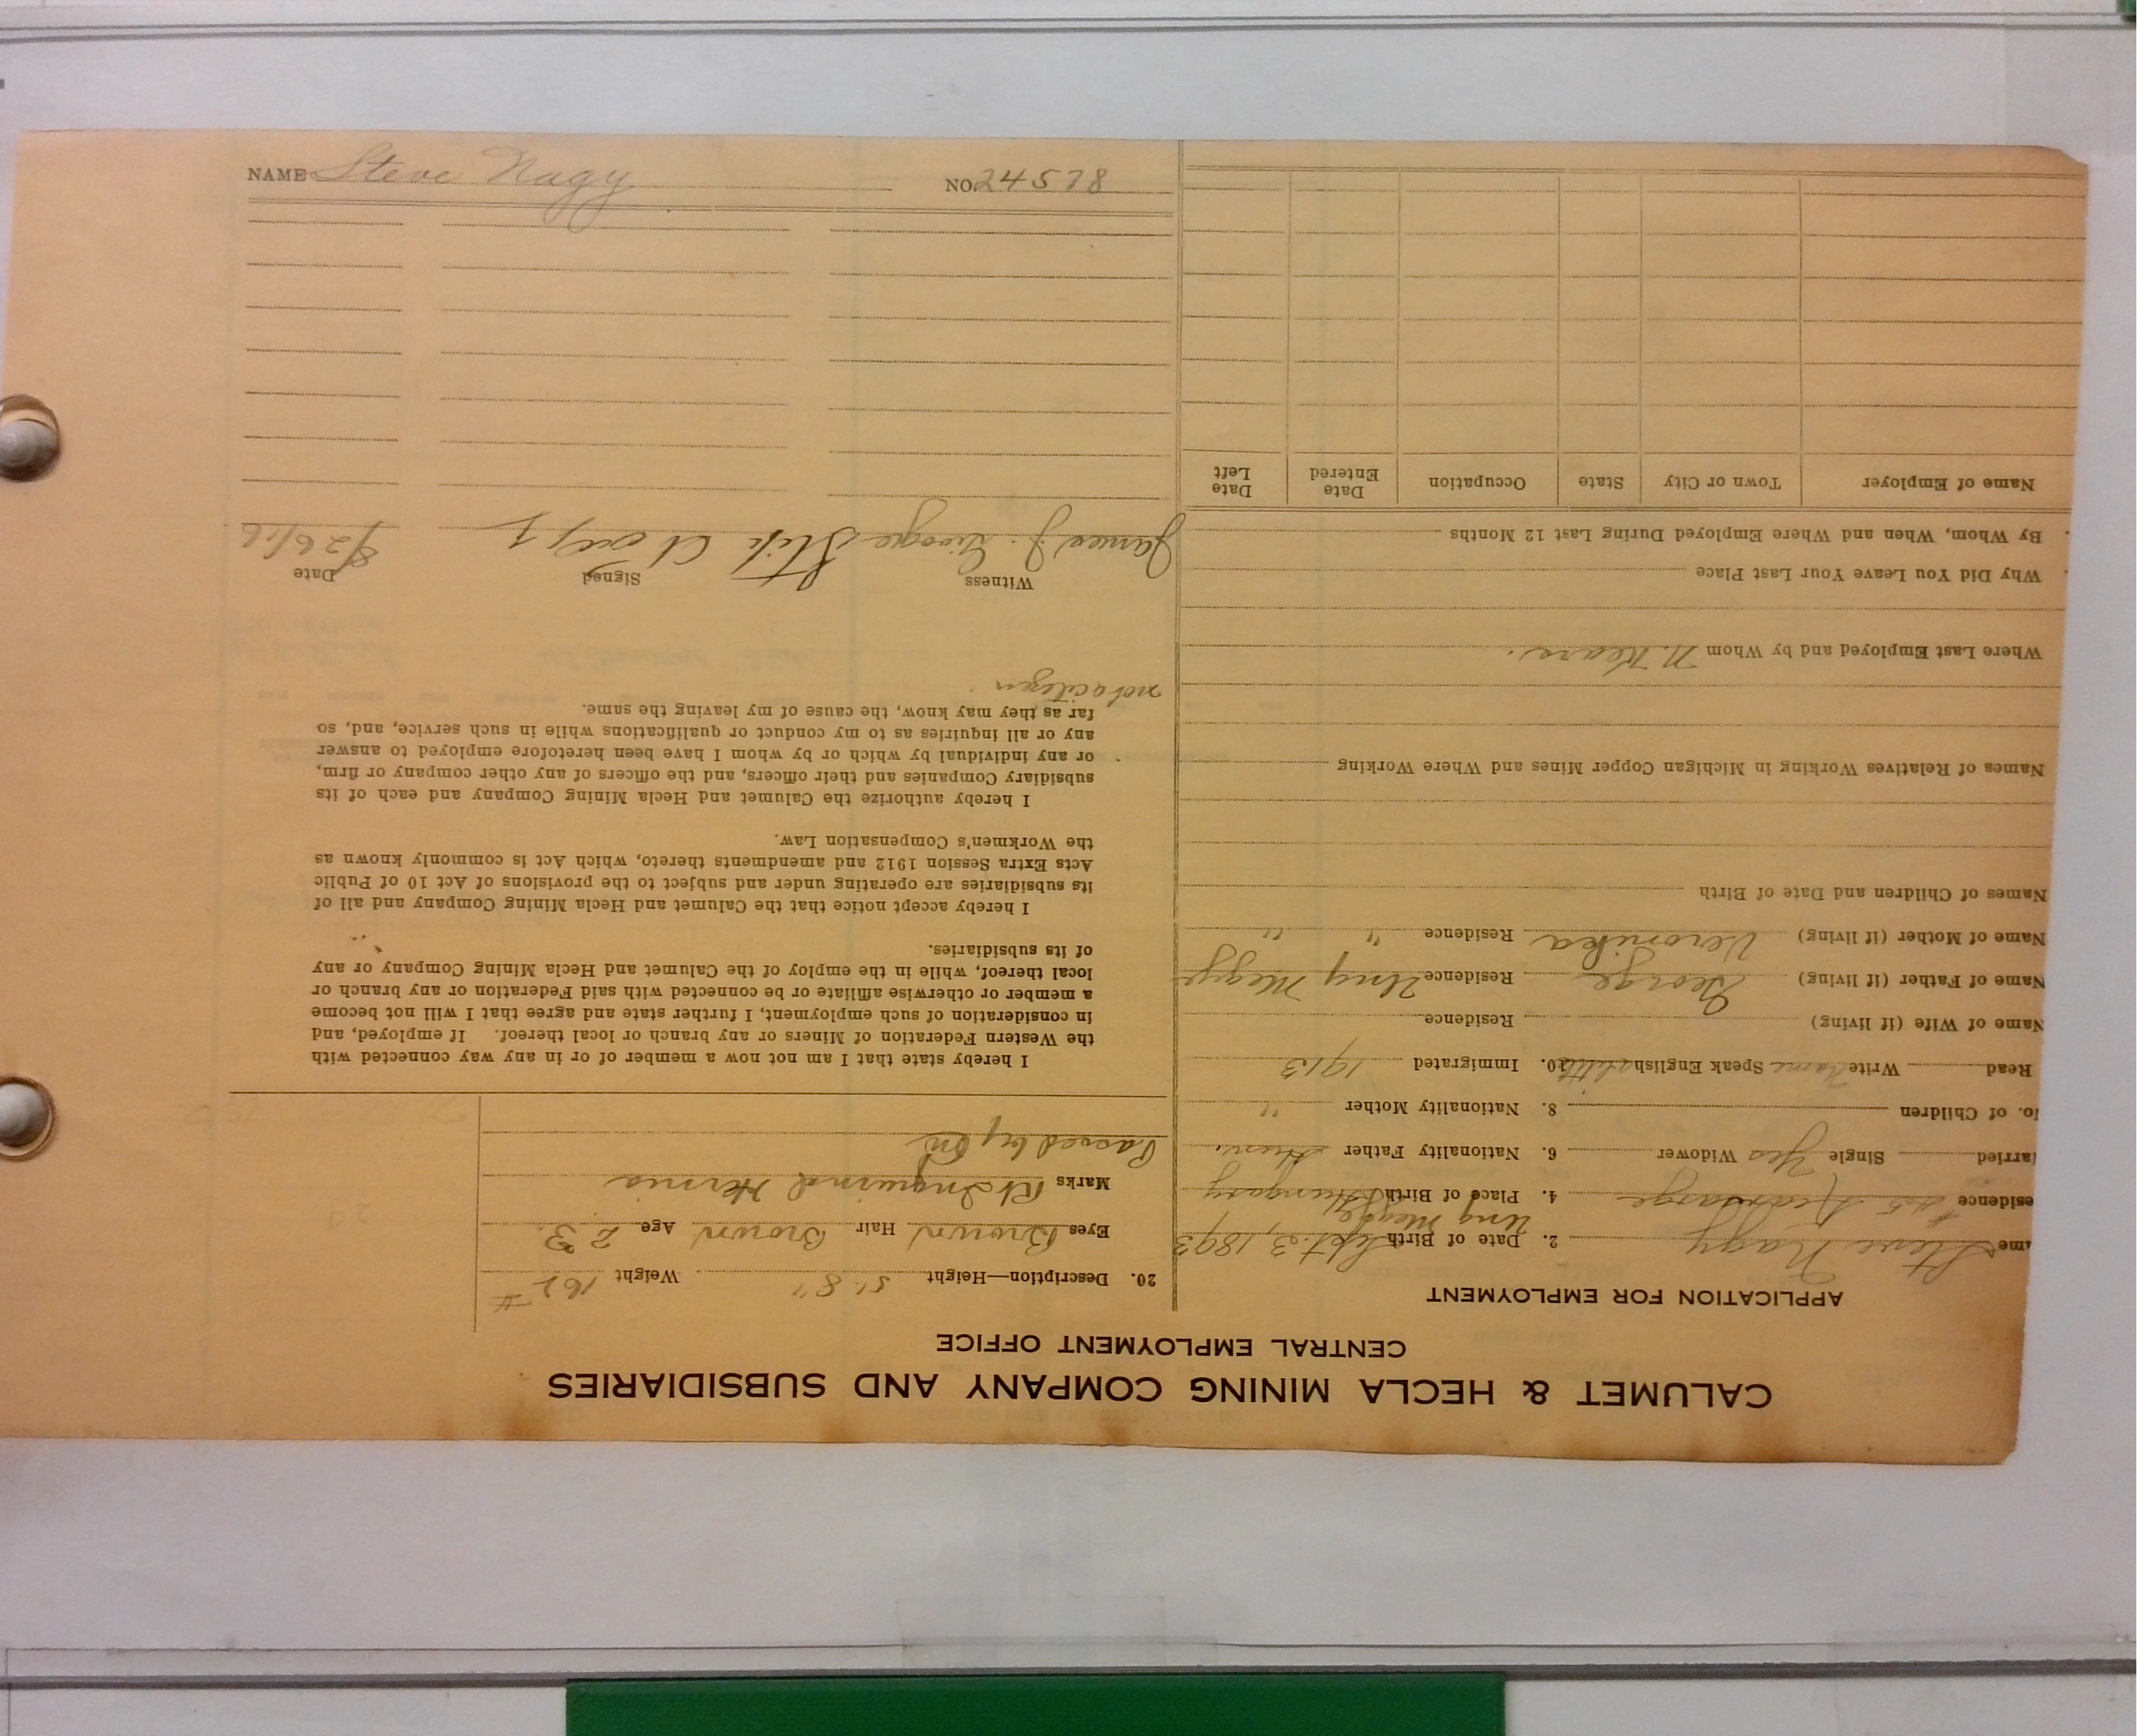 CALUMET & HECLA MINING COMPANY AND SUBSIDIARIES
CENTRAL EMPLOYMENT OFFICE
APPLICATION FOR EMPLOYMENT
ame Steve Nagy 2. Date of Birth Sept. 3, 1893
Ung Megye
esidence #45 4. Place of Birth Hungary
arried Single Yes Widower 6. Nationality Father Hun.
o. of Children 8. Nationality Mother "
Read Write Name Speak English a little 10. Immigrated 1913
Name of Wife (if living) Residence
Name of Father (if living) George Residence Ung Megye
Name of Mother (if living) Veronika Residence " "
Names of Children and Date of Birth
Names of Relatives Working in Michigan Copper Mines and Where Working
Where Last Employed and by Whom N. Kears.
Why Did You Leave Your Last Place
By Whom, When and Where Employed During Last 12 Months
Name of Employer Town or City State Occupation Date Entered Date Left
20. Description—Height 5' 8" Weight 162 #
Eyes Brown Hair Brown Age 23.
Marks Rt Inguinal Hernia
Passed by
I hereby state that I am not now a member of or in any way connected with
the Western Federation of Miners or any branch or local thereof. If employed, and
in consideration of such employment, I further state and agree that I will not become
a member or otherwise affiliate or be connected with said Federation or any branch or
local thereof, while in the employ of the Calumet and Hecla Mining Company or any
of its subsidiaries.
I hereby accept notice that the Calumet and Hecla Mining Company and all of
its subsidiaries are operating under and subject to the provisions of Act 10 of Public
Acts Extra Session 1912 and amendments thereto, which Act is commonly known as
the Workmen's Compensation Law.
I hereby authorize the Calumet and Hecla Mining Company and each of its
subsidiary Companies and their officers, and the officers of any other company or firm,
or any individual by which or by whom I have been heretofore employed to answer
any or all inquiries as to my conduct or qualifications while in such service, and, so
far as they may know, the cause of my leaving the same.
not a citizen
Witness Signed Date
James J. 8/26/16
NAME Steve Nagy NO. 24578